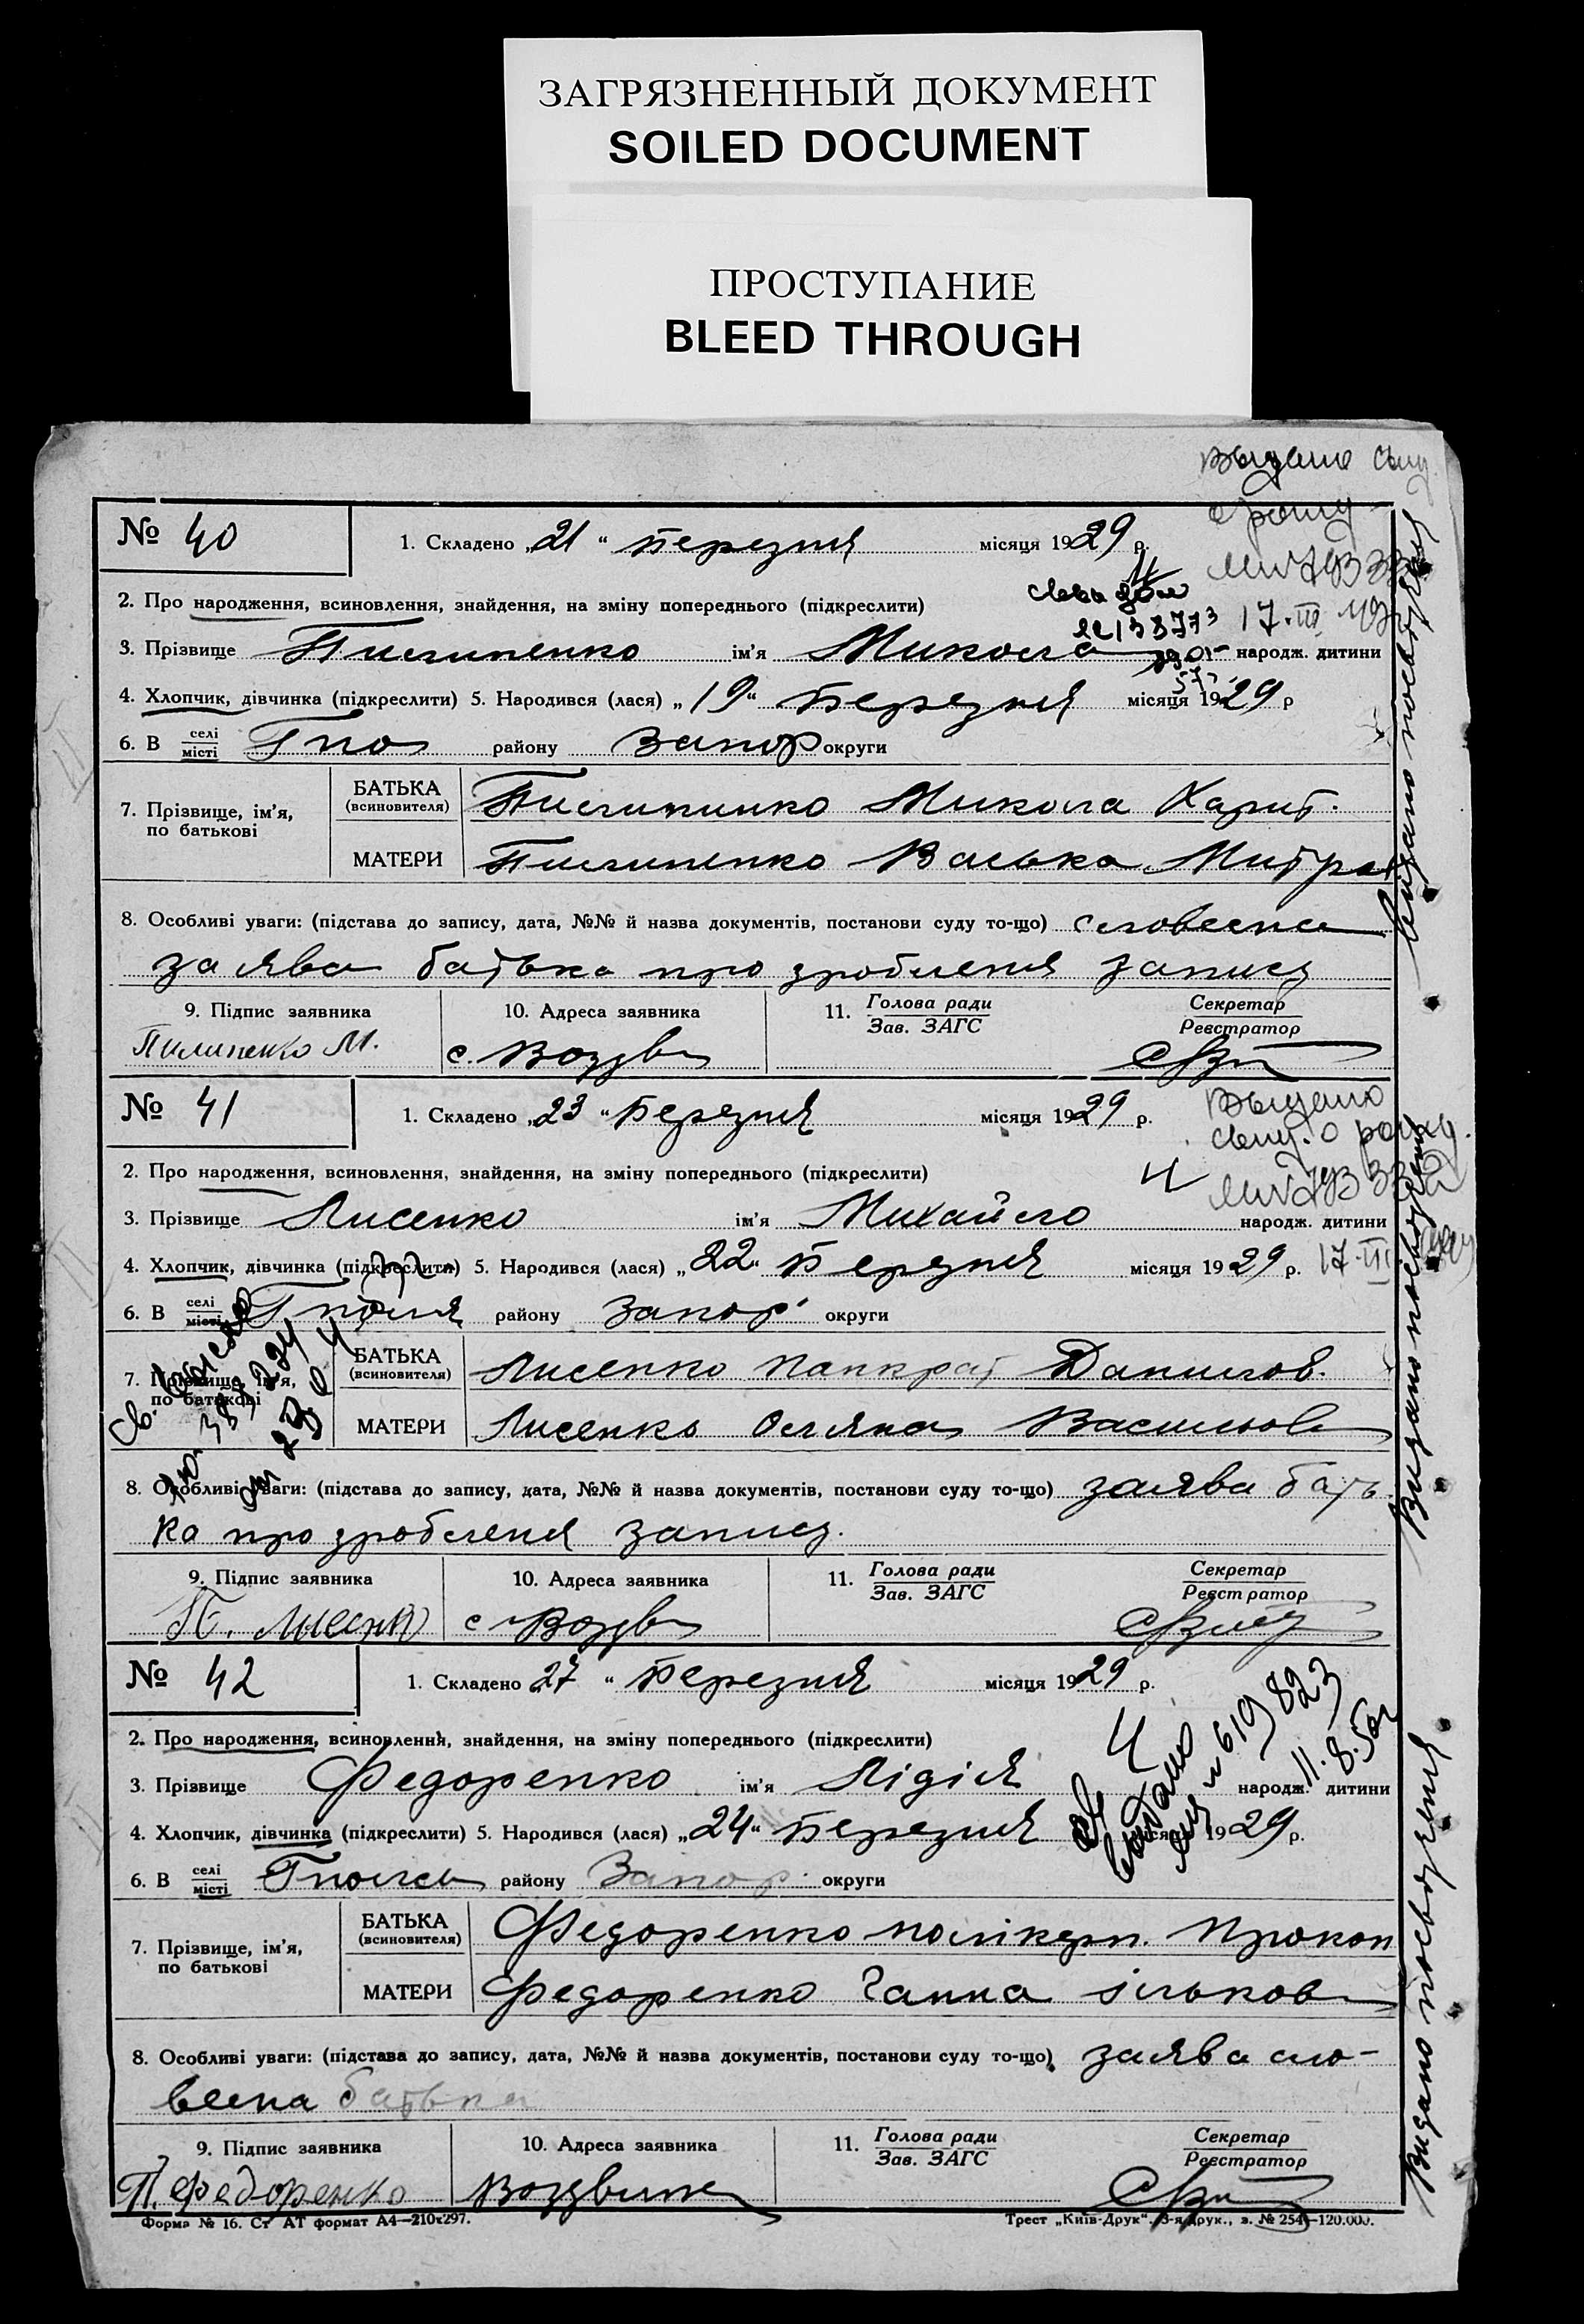 ЗАГРЯЗНЕННЫЙ ДОКУМЕНТ
SOILED DOCUMENT
ПРОСТУПАНИЕ
BLEED THROUGH
Выдано
№ 40
1. Складено „21“ березня місяця 1929 р.
2. Про народження, всиновлення, знайдення, на зміну попереднього (підкреслити)
17.III
3. Прізвище Пилипенко ім'я Микола народж. дитини
4. Хлопчик, дівчинка (підкреслити) 5. Народився (лася) „19“ березня місяця 1929 р
6. В селі місті району Запор округи
7. Прізвище, ім'я, по батькові
БАТЬКА (всиновителя) Пилипинко Микола Харит.
МАТЕРИ Пилипенко Васька Митроф
8. Особливі уваги: (підстава до запису, дата, №№ й назва документів, постанови суду то-що) словесна
заява батька про зроблення запису
9. Підпис заявника
10. Адреса заявника
11. Голова ради Зав. ЗАГС
Секретар Реєстратор
Пилипенко М.
с. Воздв
Видано посвідчення
№ 41
1. Складено „23“ Березня місяця 1929 р.
Выдано
2. Про народження, всиновлення, знайдення, на зміну попереднього (підкреслити)
3. Прізвище Лисенко ім'я Михайло народж. дитини
4. Хлопчик, дівчинка (підкреслити) 5. Народився (лася) „22“ березня місяця 1929 р. 17.III
6. В селі місті Гполя району Запор. округи
7. Прізвище, ім'я, по батькові
БАТЬКА (всиновителя) Лисенко Панкрат Данилов.
МАТЕРИ Лисенко Оляна Васильов
8. Особливі уваги: (підстава до запису, дата, №№ й назва документів, постанови суду то-що) заява бать
ка про зроблення запису.
9. Підпис заявника
10. Адреса заявника
11. Голова ради Зав. ЗАГС
Секретар Реєстратор
П. Лисенко
с Воздв
Видано посвідчення
№ 42
1. Складено 27 “ березня місяця 1929 р.
2. Про народження, всиновлення, знайдення, на зміну попереднього (підкреслити)
№ 619823
11.8.56г
3. Прізвище Федоренко ім'я Лідія народж. дитини
4. Хлопчик, дівчинка (підкреслити) 5. Народився (лася) „24“ березня місяця 1929 р.
6. В селі місті району Запор. округи
7. Прізвище, ім'я, по батькові
БАТЬКА (всиновителя) Федоренко Полікарп. Прокоп
МАТЕРИ Федоренко Ганна Ільков
8. Особливі уваги: (підстава до запису, дата, №№ й назва документів, постанови суду то-що) заява сло-
весна батька
9. Підпис заявника
10. Адреса заявника
11. Голова ради Зав. ЗАГС
Секретар Реєстратор
П. Федоренко
Воздвиж
Видано посвідчення
Форма № 16. Ст АТ формат А4—210х297.
Трест „Київ-Друк“. 3-я друк., з. № 254—120.000.